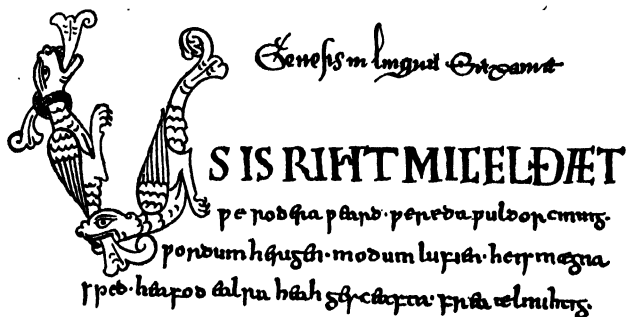 Genesis in lingua
US IS RIHT MICEL ÐÆT
ƿe rodera ƿeard · ƿereda ƿuldor cining ·
ƿordum herigen · modum lufien · he is mægna
sped · heafod ealra heah gesceafta · frea ælmihtig ·